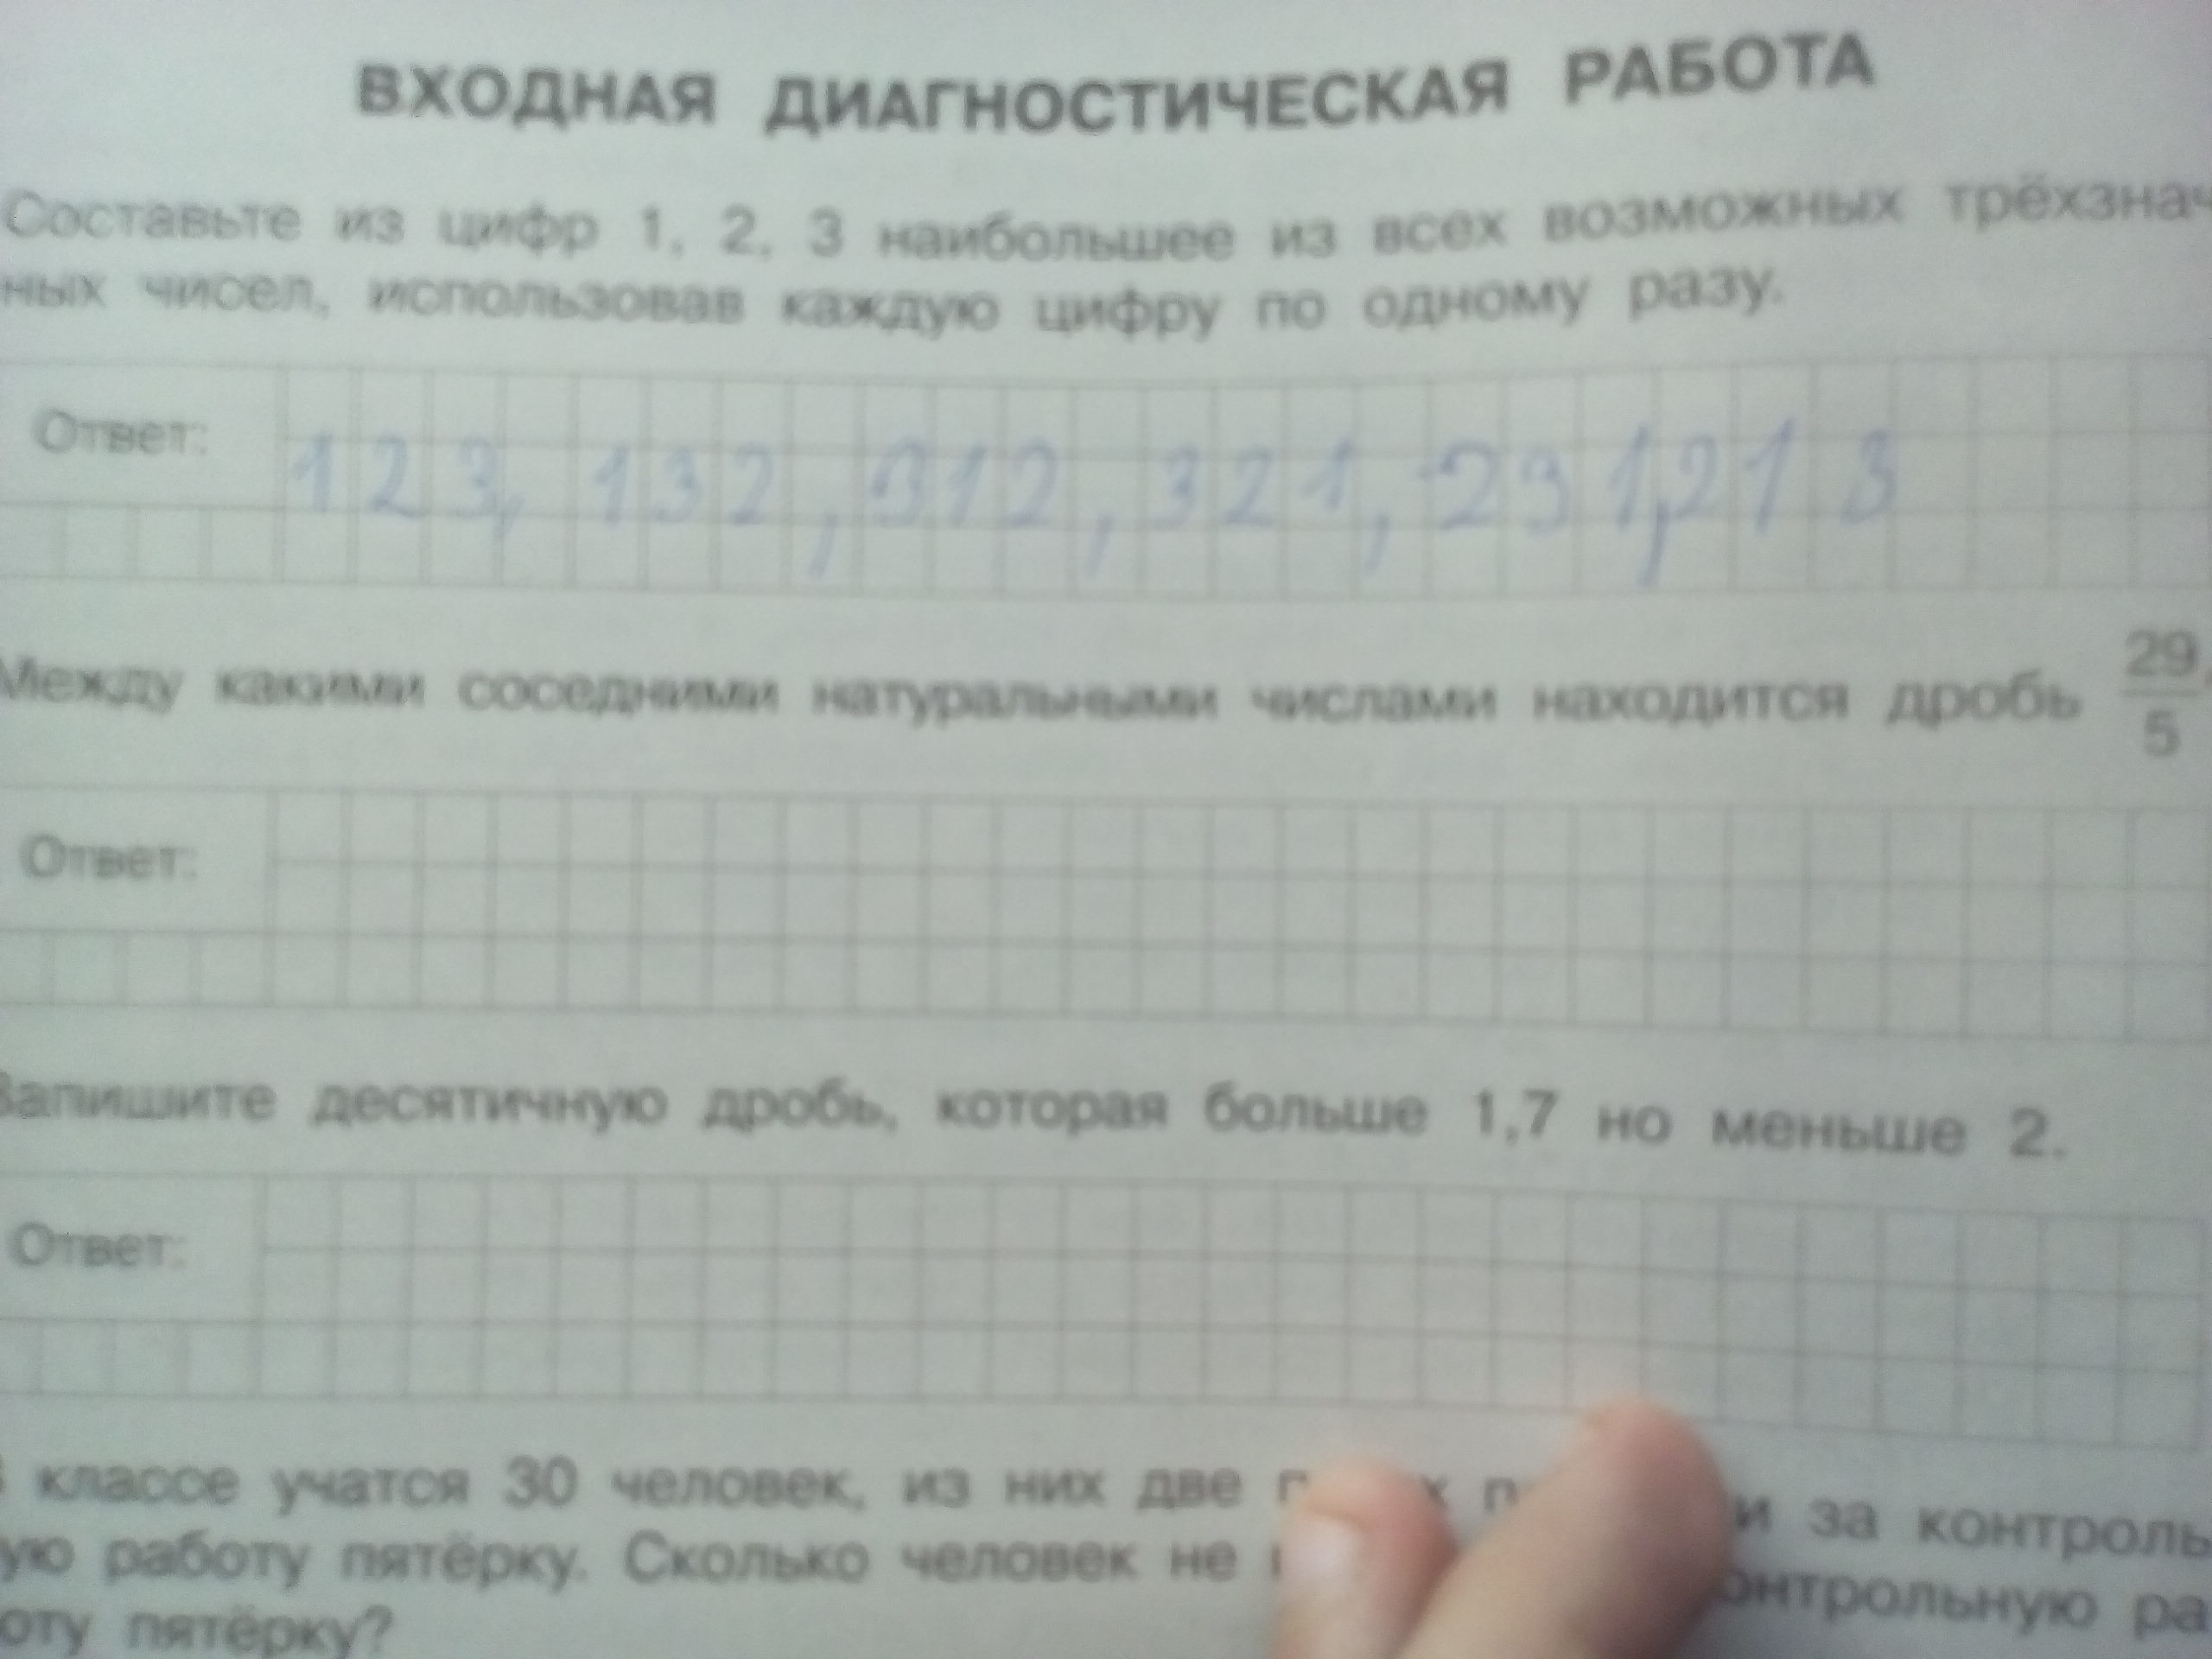 ВХОДНАЯ ДИАГНОСТИЧЕСКАЯ РАБОТА
Составьте из цифр 1, 2, 3 наибольшее из всех возможных трёхзнач
ных чисел, использовав каждую цифру по одному разу.
Ответ: 123, 132, 312, 321, 231, 213
Между какими соседними натуральными числами находится дробь 29/5
Ответ:
Запишите десятичную дробь, которая больше 1,7 но меньше 2.
Ответ:
классе учатся 30 человек, из них две за контроль
ую работу пятёрку. Сколько человек не онтрольную ра
оту пятёрку?